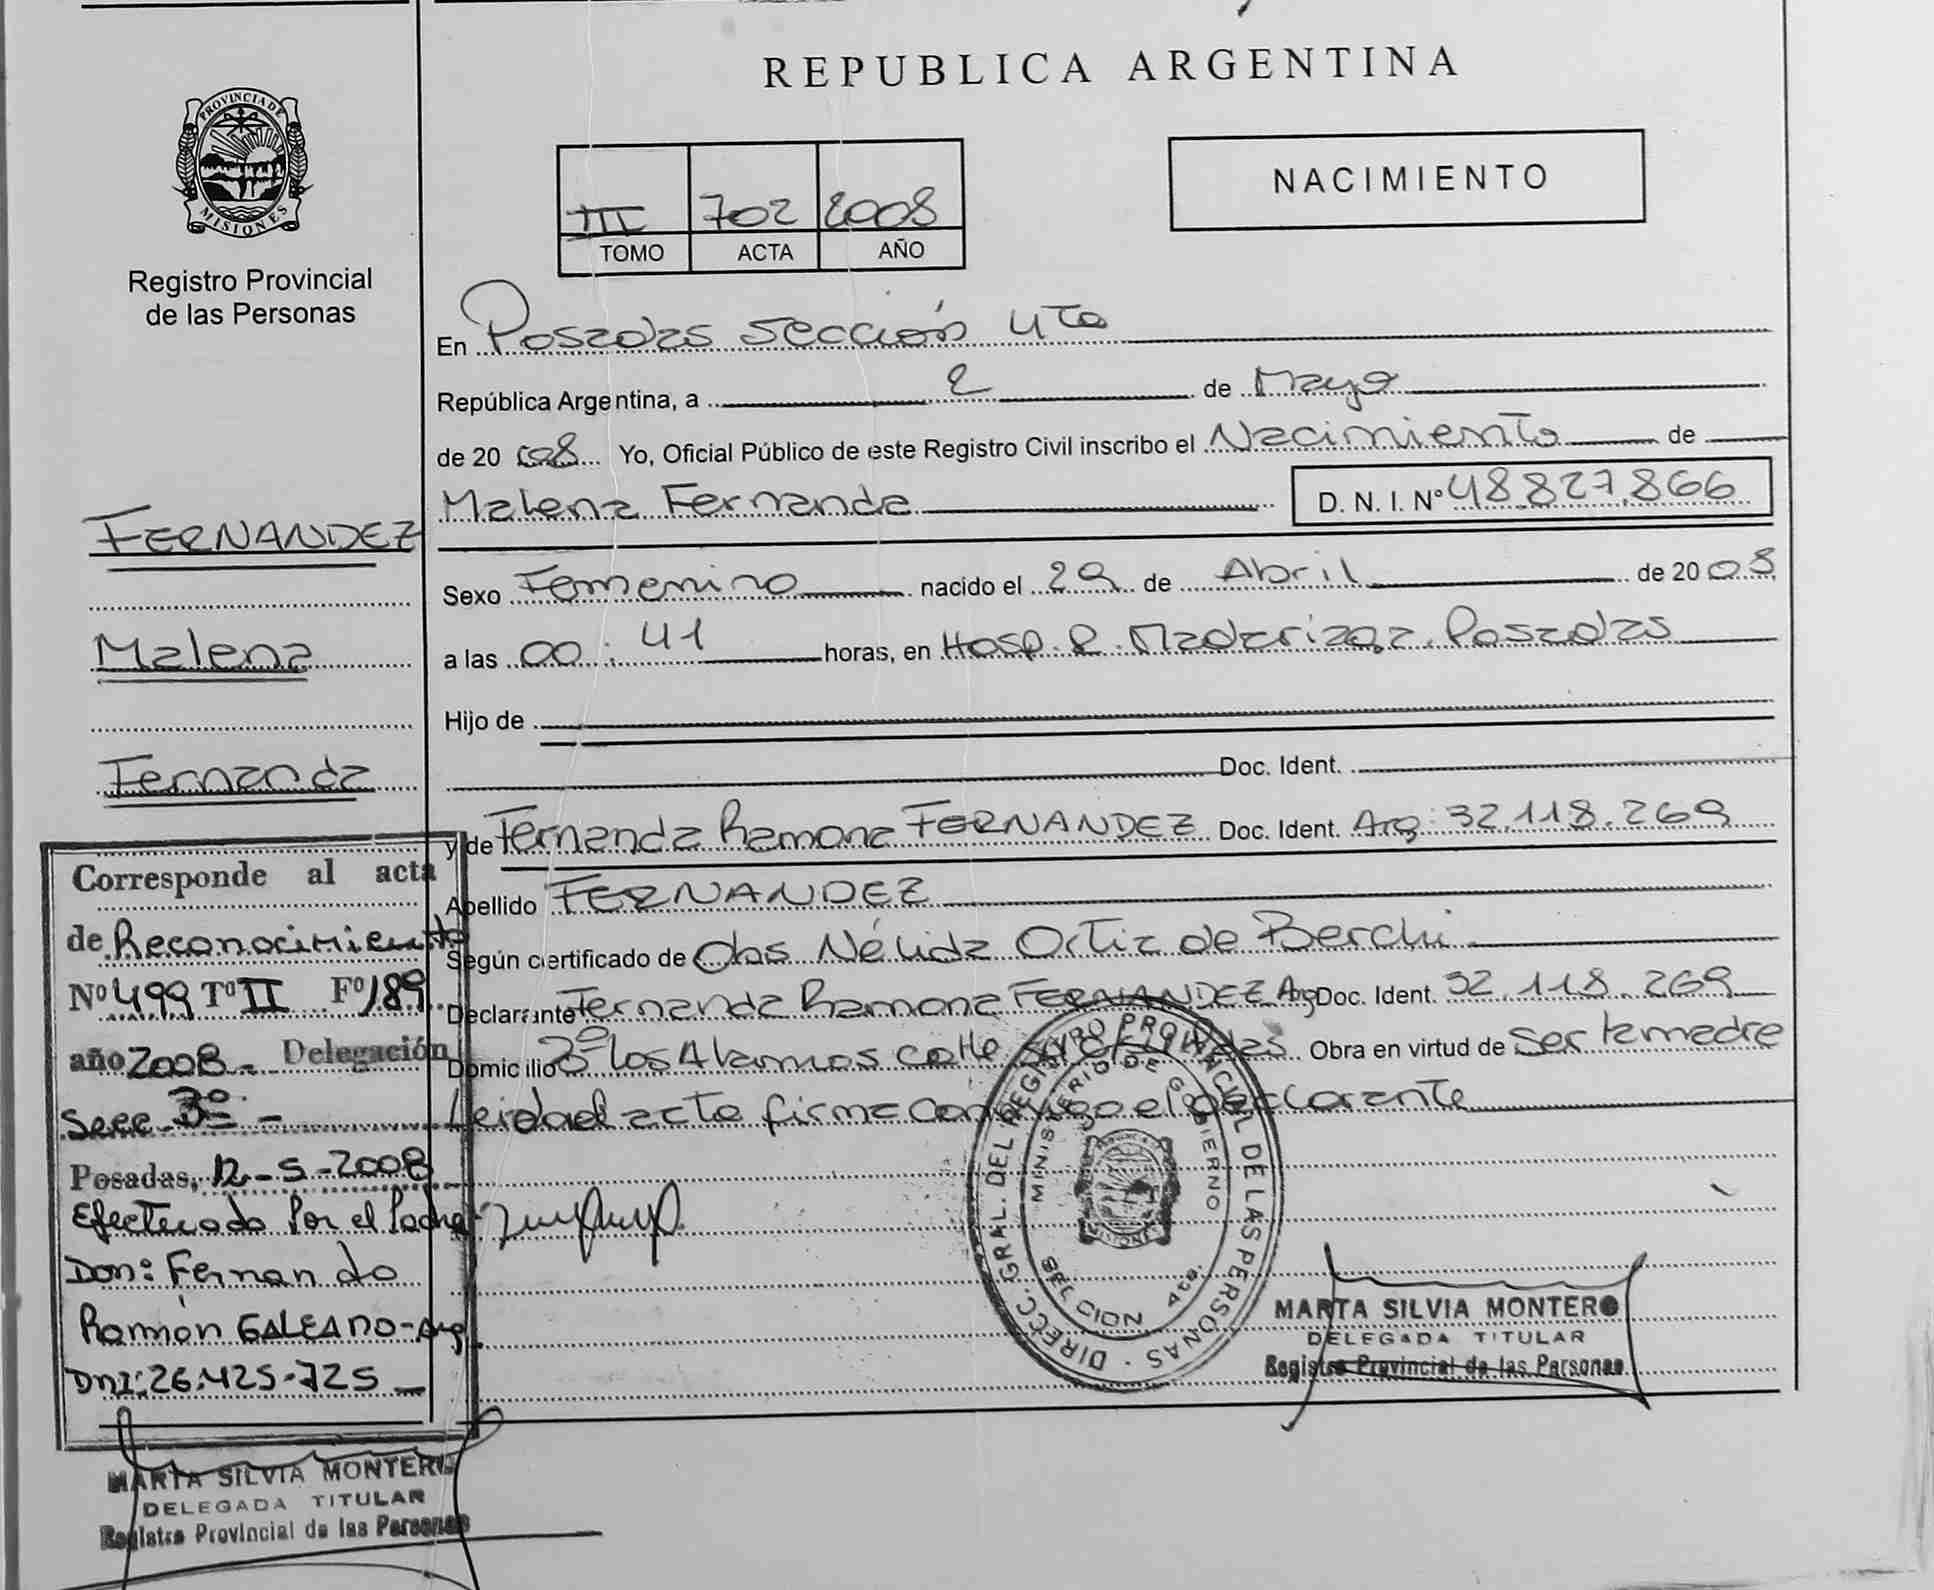 REPUBLICA ARGENTINA
PROVINCIA DE MISIONES
Registro Provincial
de las Personas
NACIMIENTO
III 702 2008
TOMO ACTA AÑO
En Posadas sección 4ta
República Argentina, a 2 de Mayo
de 20 008 Yo, Oficial Público de este Registro Civil inscribo el Nacimiento de
Malena Fernanda D. N. I. Nº 48.827.866
FERNANDEZ
Malena
Fernanda
Sexo Femenino nacido el 29 de Abril de 20 08
a las 00:41 horas, en Hosp. R. Madariaga. Posadas
Hijo de
Doc. Ident.
y de Fernanda Ramona FERNANDEZ Doc. Ident. Arg: 32.118.269
Apellido FERNANDEZ
Según certificado de Obs Nélida Ortiz de Berchi
Declarante Fernanda Ramona FERNANDEZ Arg Doc. Ident. 32.118.269
Domicilio Bº los Alamos calle Obra en virtud de ser la madre
Leida el acta firma conmigo el declarante
Corresponde al acta
de Reconocimiento
Nº 499 Tº II Fº 189
año 2008.- Delegación
Secc 3º -
Posadas, 12-5-2008
Efectuado Por el Padre
Don: Fernando
Ramón GALEANO-Arg
DNI:26.425.725
DIRECC. GRAL. DEL REGISTRO PROVINCIAL DE LAS PERSONAS
MINISTERIO DE GOBIERNO
SECCION 4ta.
MISIONES
MARTA SILVIA MONTERO
DELEGADA TITULAR
Registro Provincial de las Personas
MARTA SILVIA MONTERO
DELEGADA TITULAR
Registro Provincial de las Personas